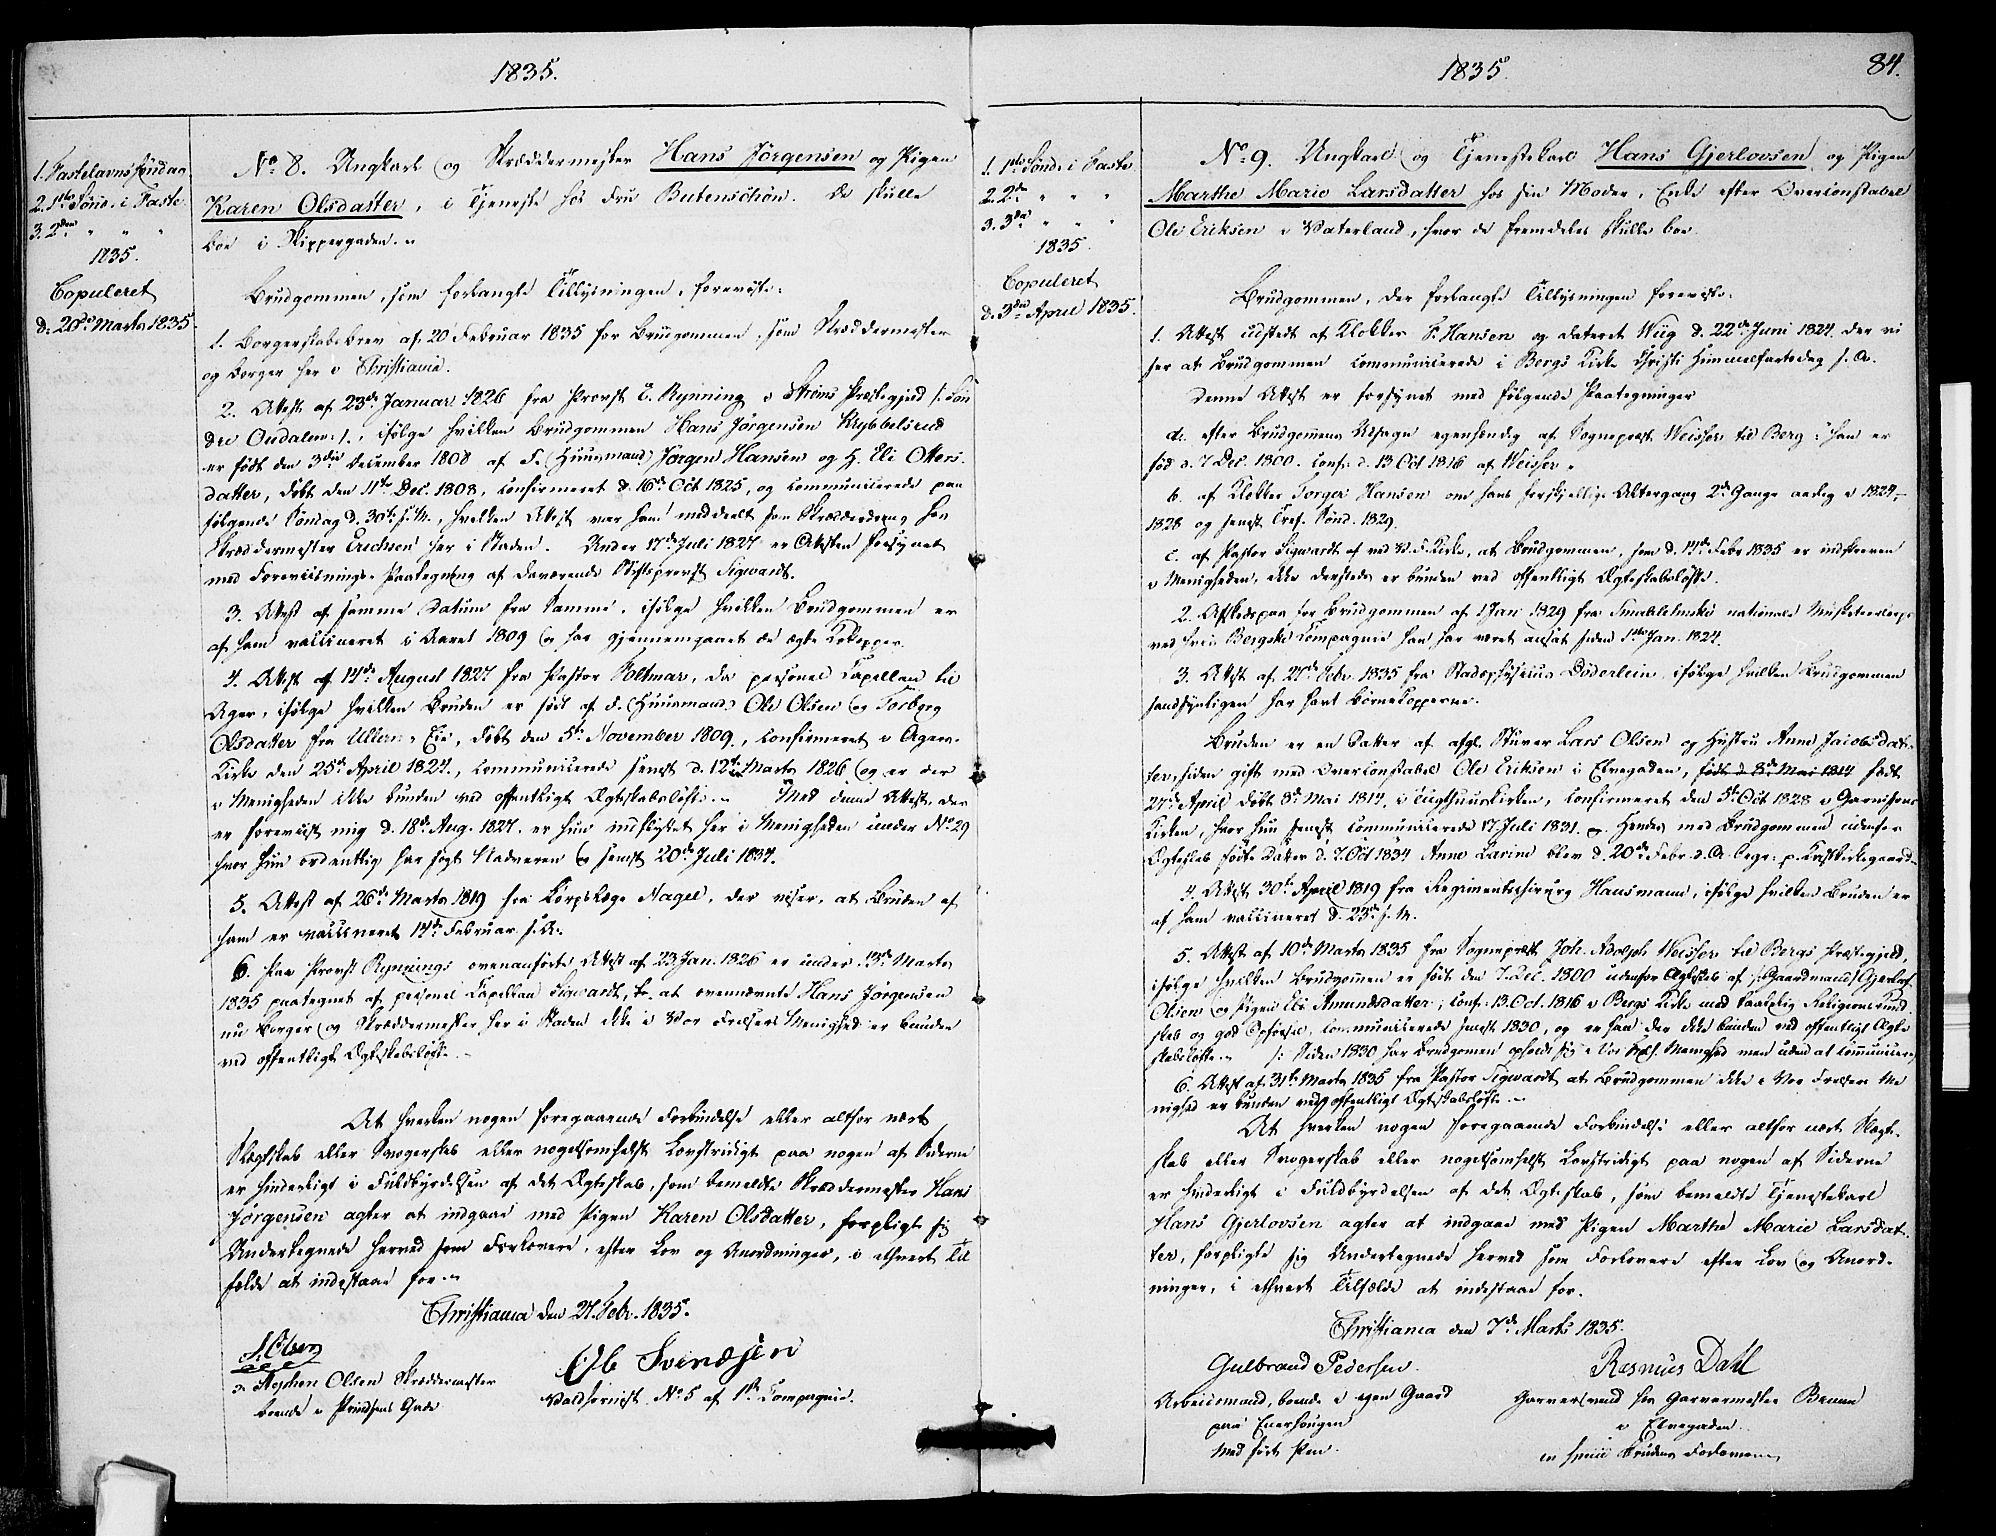 1835.
1. Fastelavns Søndag
2. 1ste Sönd. i Faste.
3. 2den " " "
1835.
Copuleret
d. 20de Marts 1835.
No 8. Ungkarl og Skræddermester Hans Jörgensen og Pigen
Karen Olsdatter, i Tjeneste hos Fru Butenschön. De skulle
boe i Skippergaden.
Brudgommen, som forlangte Tillysningen, foreviste:
1. Borgerskabsbrev af 20 Februar 1835 for Brudgommen, som Skræddermester
og Borger her i Christiania.
2. Attest af 23de Januar 1826 fra Provst E. Rynning i Ströms Præstegjeld /: Søn
dre Oudalen :/, ifölge hvilken Brudgommen Hans Jörgensen Krybbelsrud
er födt den 3die December 1808 af F. (Huusmand) Jörgen Hansen og H. Eli Otters-
datter, döbt den 11te Dec. 1808, confirmeret d. 16de Oct 1825, og communicerede paa
fölgende Söndag d. 30te s. M., hvilken Attest var ham meddeelt som Skrædderdreng hos
Skræddermester Erichsen her i Staden. Under 17de Juli 1827 er Attesten forsynet
med Forevisnings-Paategning af daværende Stiftsprovst Sigwardt.
3. Attest af samme Datum fra Samme, ifölge hvilken Brudgommen er
af ham vaccineret i Aaret 1809 og har gjennemgaaet de ægte Kokopper.
4. Attest af 14de August 1827 fra Pastor Foltmar, da personel Capellan til
Ager, ifölge hvilken Bruden er födt af F. (Huusmand) Ole Olsen og Torbyrg
Olsdatter fra Ullern-Eie, döbt den 5te November 1809, confirmeret i Agers-
Kirke den 25de April 1824, communicerede senest d. 12te Marts 1826 og er der
i Menigheden ikke bunden ved offentligt Ægteskabslöfte. Med denne Attest, der
er foreviist mig d. 18de Aug. 1827, er hun indflyttet her i Menigheden under No 29
hvor hun ordentlig har sögt Nadveren og senest 20de Juli 1834.
5. Attest af 26de Marts 1819 fra Corpslæge Nagel, der viser, at Bruden af
ham er vaccineret 14de Februar s. A.
6. Paa Provst Rynnings ovenanförte Attest af 23 Jan. 1826 er under 13de Marts
1835 paategnet af personel Capellan Sigwardt, at ovennævnte Hans Jörgensen
nu Borger og Skræddermester her i Staden ikke i Vor Frelsers Menighed er bunden
ved offentligt Ægteskabslöfte.
At hverken nogen foregaaende Forbindelse eller altfor nært
Slægtskab eller Svogerskab eller nogetsomhelst Lovstridigt paa nogen af Siderne
er hinderligt i Fuldbyrdelsen af det Ægteskab, som bemeldte Skræddermester Hans
Jörgensen agter at indgaae med Pigen Karen Olsdatter, forpligte sig
Undertegnede herved som Forlovere, efter Lov og Anordninger, i ethvert Til
fælde at indestaae for.
Christiania den 27. Febr. 1835.
S. Olsen
Stephen Olsen Skræddermester
boende i Prindsens Gade
Ole Svendsen
Valdhornist No 5 af 1ste Compagnie.
1835.
84.
1. 1ste Sönd. i Faste
2. 2de " " "
3. 3die " " "
1835.
Copuleret
d. 3die April 1835.
No 9. Ungkarl og Tjenestekarl Hans Gjerlovsen og Pigen
Marthe Marie Larsdatter hos sin Moder, Enke efter Overconstabel
Ole Eriksen i Vaterland, hvor de fremdeles skulle boe.
Brudgommen, der forlangte Tillysningen foreviste:
1. Attest udstedt af Klokker T. Hansen og dateret Wiig d. 22de Juni 1824 der vi
ser at Brudgommen communicerede i Bergs Kirke Christi Himmelfartsdag s. A.
Denne Attest er forsynet med fölgende Paategninger
a. efter Brudgommens Udsagn egenhændig af Sognepræst Weisser til Berg: "han er
föd d. 7 Dec. 1800. Conf. d. 13 Oct 1816 af Weisser.
b. af Klokker Torger Hansen om hans forskjellige Altergang 2de Gange aarlig i 1827,
1828 og senest Tref. Sönd. 1829.
c. af Pastor Sigwardt af ved V. F. Kirke, at Brudgommen, som d. 14de Febr 1835 er indskreven
i Menigheden, ikke dersteds er bunden ved offentligt Ægteskabslöfte.
2. Afskedspas for Brudgommen af 1 Jan. 1829 fra Smaalehnske nationale Musketeercorps
ved hvis Bergske Compagnie han har været ansat siden 1ste Jan. 1824.
3. Attest af 27de Febr. 1835 fra Stadsphysicus Döderlein ifölge hvilken Brudgommen
sandsynligen har havt Börnekopperne.
Bruden er en Datter af afgl. Stuver Lars Olsen og Hustru Anne Jacobsdat-
ter, siden gift med Overconstabel Ole Eriksen i Elvegaden, födt d. 8de Mai 1814 födt
27de April döbt 8de Mai 1814 i Tugthuuskirken, confirmeret den 5te Oct 1828 i Garnisons
Kirken, hvor hun senest communicerede 17 Juli 1831. Hendes med Brudgommen udenfor
Ægteskab födte Datter d. 7. Oct 1834 Anne Larine blev d. 20de Febr. d. A. begr. p. Kristkirkegaard.
4. Attest 30te April 1819 fra Regimentschirurg Hausmann, ifölge hvilken Bruden er
af ham vaccineret d. 23de s. M.
5. Attest af 10de Marts 1835 fra Sognepræst Joh. Adolph Weisser til Bergs Præstegjeld,
ifölge hvilken Brudgommen er födt den 7. Dec. 1800 udenfor Ægteskab af /: Gaardmand :/ Gjerlof
Olsen og Pigen Eli Amundsdatter; Conf. 13. Oct. 1816 i Bergs Kirke med saadelig Religionskund
skab og god Opförsel, communicerede senest 1830, og er han der ikke bunden ved offentligt Ægte
skabslöfte. /: Siden 1830 har Brudgommen opholdt sig i Vor Frels. Menighed men uden at communicere.
6. Attest af 31te Marts 1835 fra Pastor Sigwardt at Brudgommen ikke i Vor Frelsers Me
nighed er bunden ved offentligt Ægteskabslöfte.
At hverken nogen foregaaende Forbindelse eller altfor nært Slægt-
skab eller Svogerskab eller nogetsomhelst Lovstridigt paa nogen af Siderne
er hinderligt i Fuldbyrdelsen af det Ægteskab, som bemeldte Tjenestekarl
Hans Gjerlovsen agter at indgaae med Pigen Marthe Marie Larsdat-
ter, forpligte sig Undertegnede herved som Forlovere efter Lov og Anord-
ninger, i ethvert Tilfælde at indestaae for.
Christiania den 7de Marts 1835.
Gulbrand Pedersen.
Arbeidsmand, boende i egen Gaard
paa Enerhougen
Med fört Pen.
Rasmus Dahl
Garversvend hos Garvermester Brunn
i Elvegaden.
Brudens Forlover